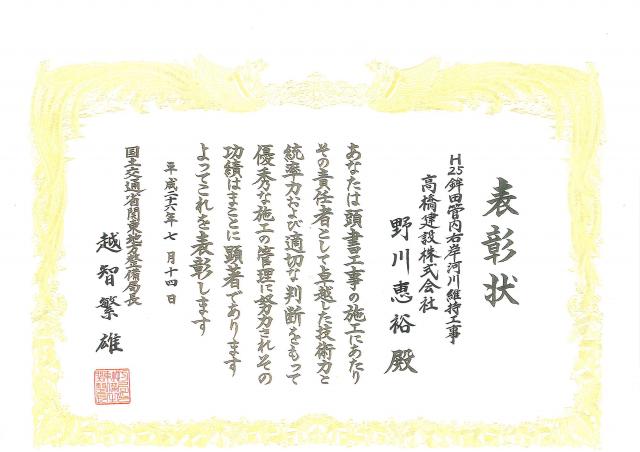 表彰状
H25鉾田管内右岸河川維持工事
高橋建設株式会社
野川恵裕殿
あなたは頭書工事の施工にあたり
その責任者として卓越した技術力と
統率力および適切な判断をもって
優秀な施工の管理に努力されその
功績はまことに顕著であります
よってこれを表彰します
平成二十六年七月十四日
国土交通省関東地方整備局長
越智繁雄